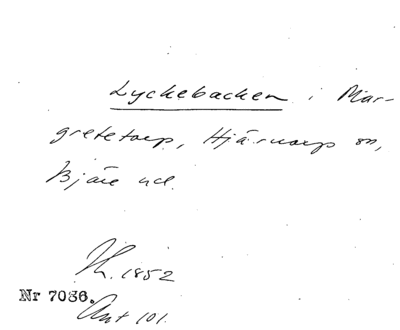 Lyckebacken i Mar-
gretetorp, Hjärnarp sn,
Bjäre hd.
Jh. 1852
Nr 7036.
Ant 101.